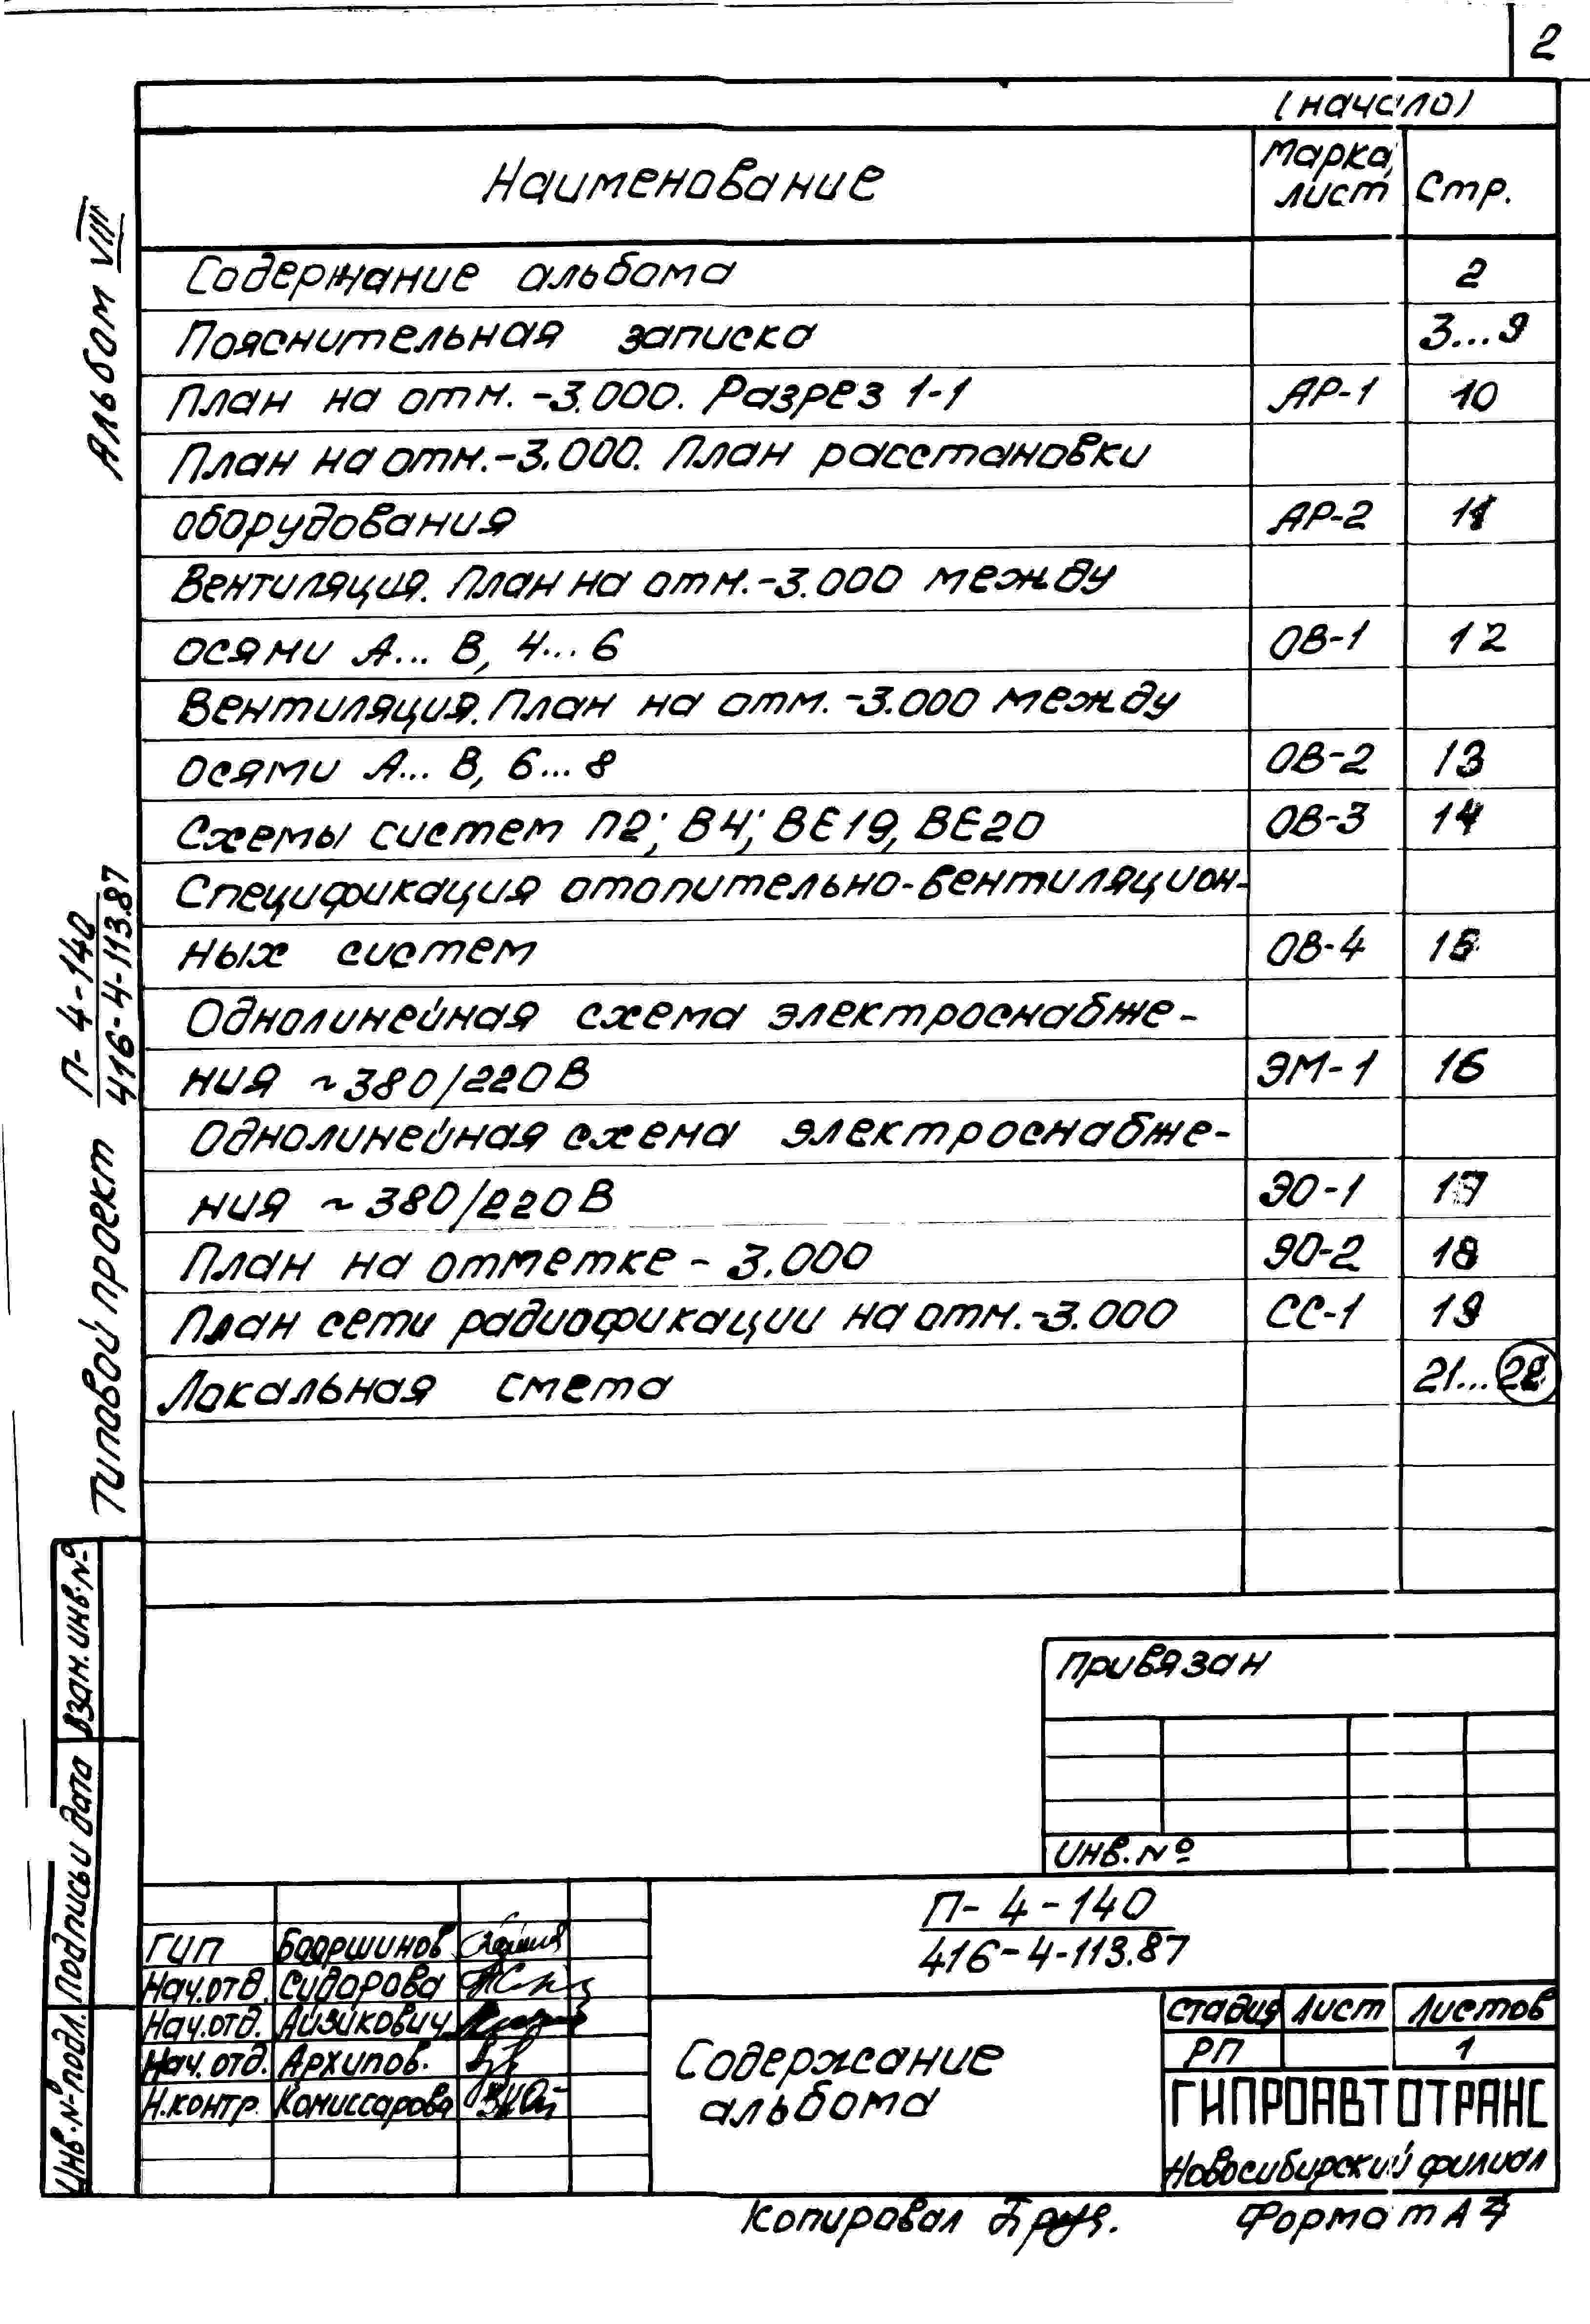 2
(начало)
Наименование
Марка, лист
Стр.
Содержание альбома 2
Пояснительная записка 3...9
План на отм. -3.000. Разрез 1-1 АР-1 10
План на отм.-3.000. План расстановки
оборудования АР-2 11
Вентиляция. План на отм.-3.000 между
осями А... В, 4... 6 ОВ-1 12
Вентиляция. План на отм. -3.000 между
осями А... В, 6... 8 ОВ-2 13
Схемы систем П2; В4; ВЕ19, ВЕ20 ОВ-3 14
Спецификация отопительно-вентиляцион-
ных систем ОВ-4 15
Однолинейная схема электроснабже-
ния ~380/220В ЭМ-1 16
Однолинейная схема электроснабже-
ния ~380/220В ЭО-1 17
План на отметке - 3.000 ЭО-2 18
План сети радиофикации на отм.-3.000 СС-1 19
Локальная смета 21...
Альбом VIII
Типовой проект
П- 4-140
416-4-113.87
Взам. инв.№
Подпись и дата
Инв.№подл.
Привязан
Инв.№
П- 4-140
416-4-113.87
ГИП
Нач.отд. Сидорова
Нач.отд. Айзикович
Нач.отд. Архипов.
Н.контр. Комиссарова
Содержание
альбома
Стадия Лист Листов
РП 1
ГИПРОАВТОТРАНС
Новосибирский филиал
Копировал
Формат А4